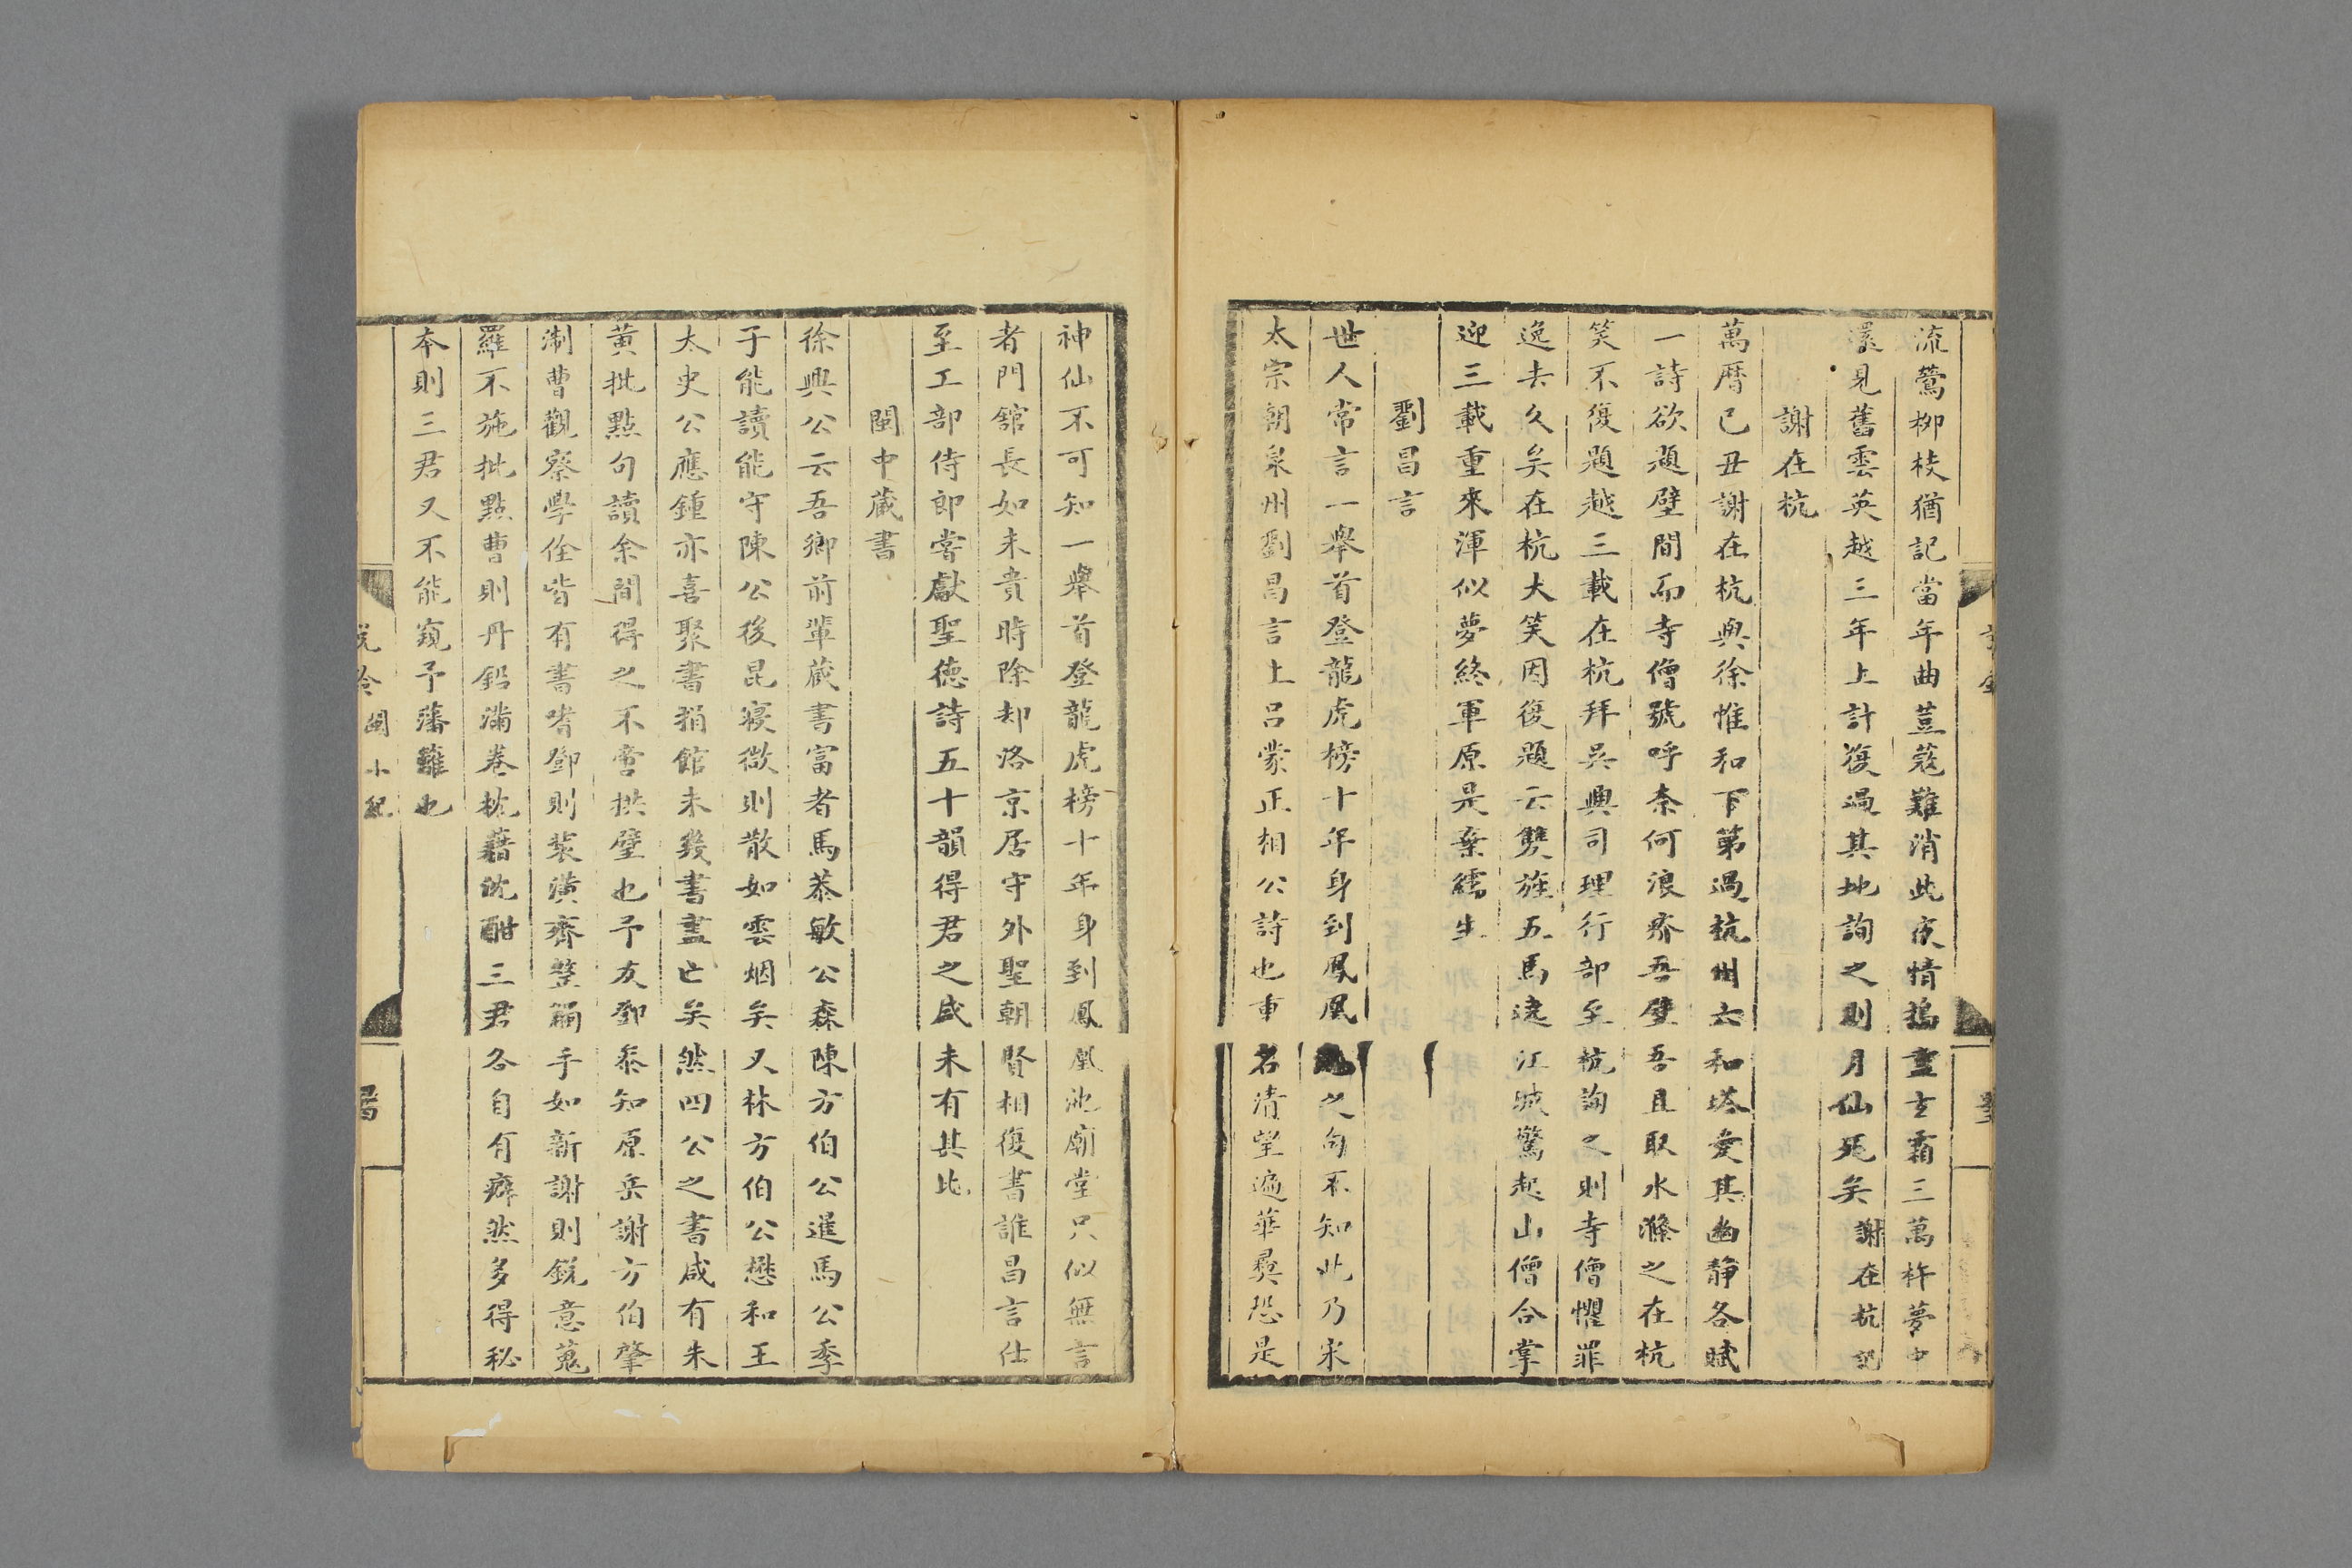 流鶯柳枝猶記當年曲荳蔻難消此夜情搗盡玄霜三萬杵夢中
還見舊雲英越三年上計復過其地詢之則月仙死矣謝在杭記
謝在杭
萬曆己丑謝在杭與徐惟和下第過杭州六和塔愛其幽靜各賦
一詩欲題壁間而寺僧號呼柰何浪疥吾壁吾且取水滌之在杭
笑不復題越三載在杭拜吳興司理行部至杭詢之則寺僧懼罪
逸去久矣在杭大笑因復題云雙旌五馬遶江城驚起山僧合掌
迎三載重來渾似夢終軍原是棄繻生
劉昌言
世人常言一舉首登龍虎榜十年身到鳳凰池之句不知此乃宋
太宗朝泉州劉昌言上呂蒙正相公詩也重名清望遍華彞恐是
神仙不可知一舉首登龍虎榜十年身到鳳凰池廟堂只似無言
者門舘長如未貴時除却洛京居守外聖朝賢相復書誰昌言仕
至工部侍郎嘗獻聖德詩五十韻得君之盛未有其比
閩中藏書
徐興公云吾鄉前輩藏書富者馬恭敏公森陳方伯公暹馬公季
子能讀能守陳公後昆寖微則散如雲烟矣又林方伯公懋和王
太史公應鍾亦喜聚書捐館未幾書盡亡矣然四公之書咸有朱
黄批點句讀余間得之不啻拱璧也予友鄧叅知原岳謝方伯肇
淛曹觀察學佺皆有書嗜鄧則裝潢齊整觸手如新謝則銳意蒐
羅不施批點曹則丹鉛滿卷枕藉沈酣三君各自有癖然多得秘
本則三君又不能窺予藩籬也
說鈴 閩小紀